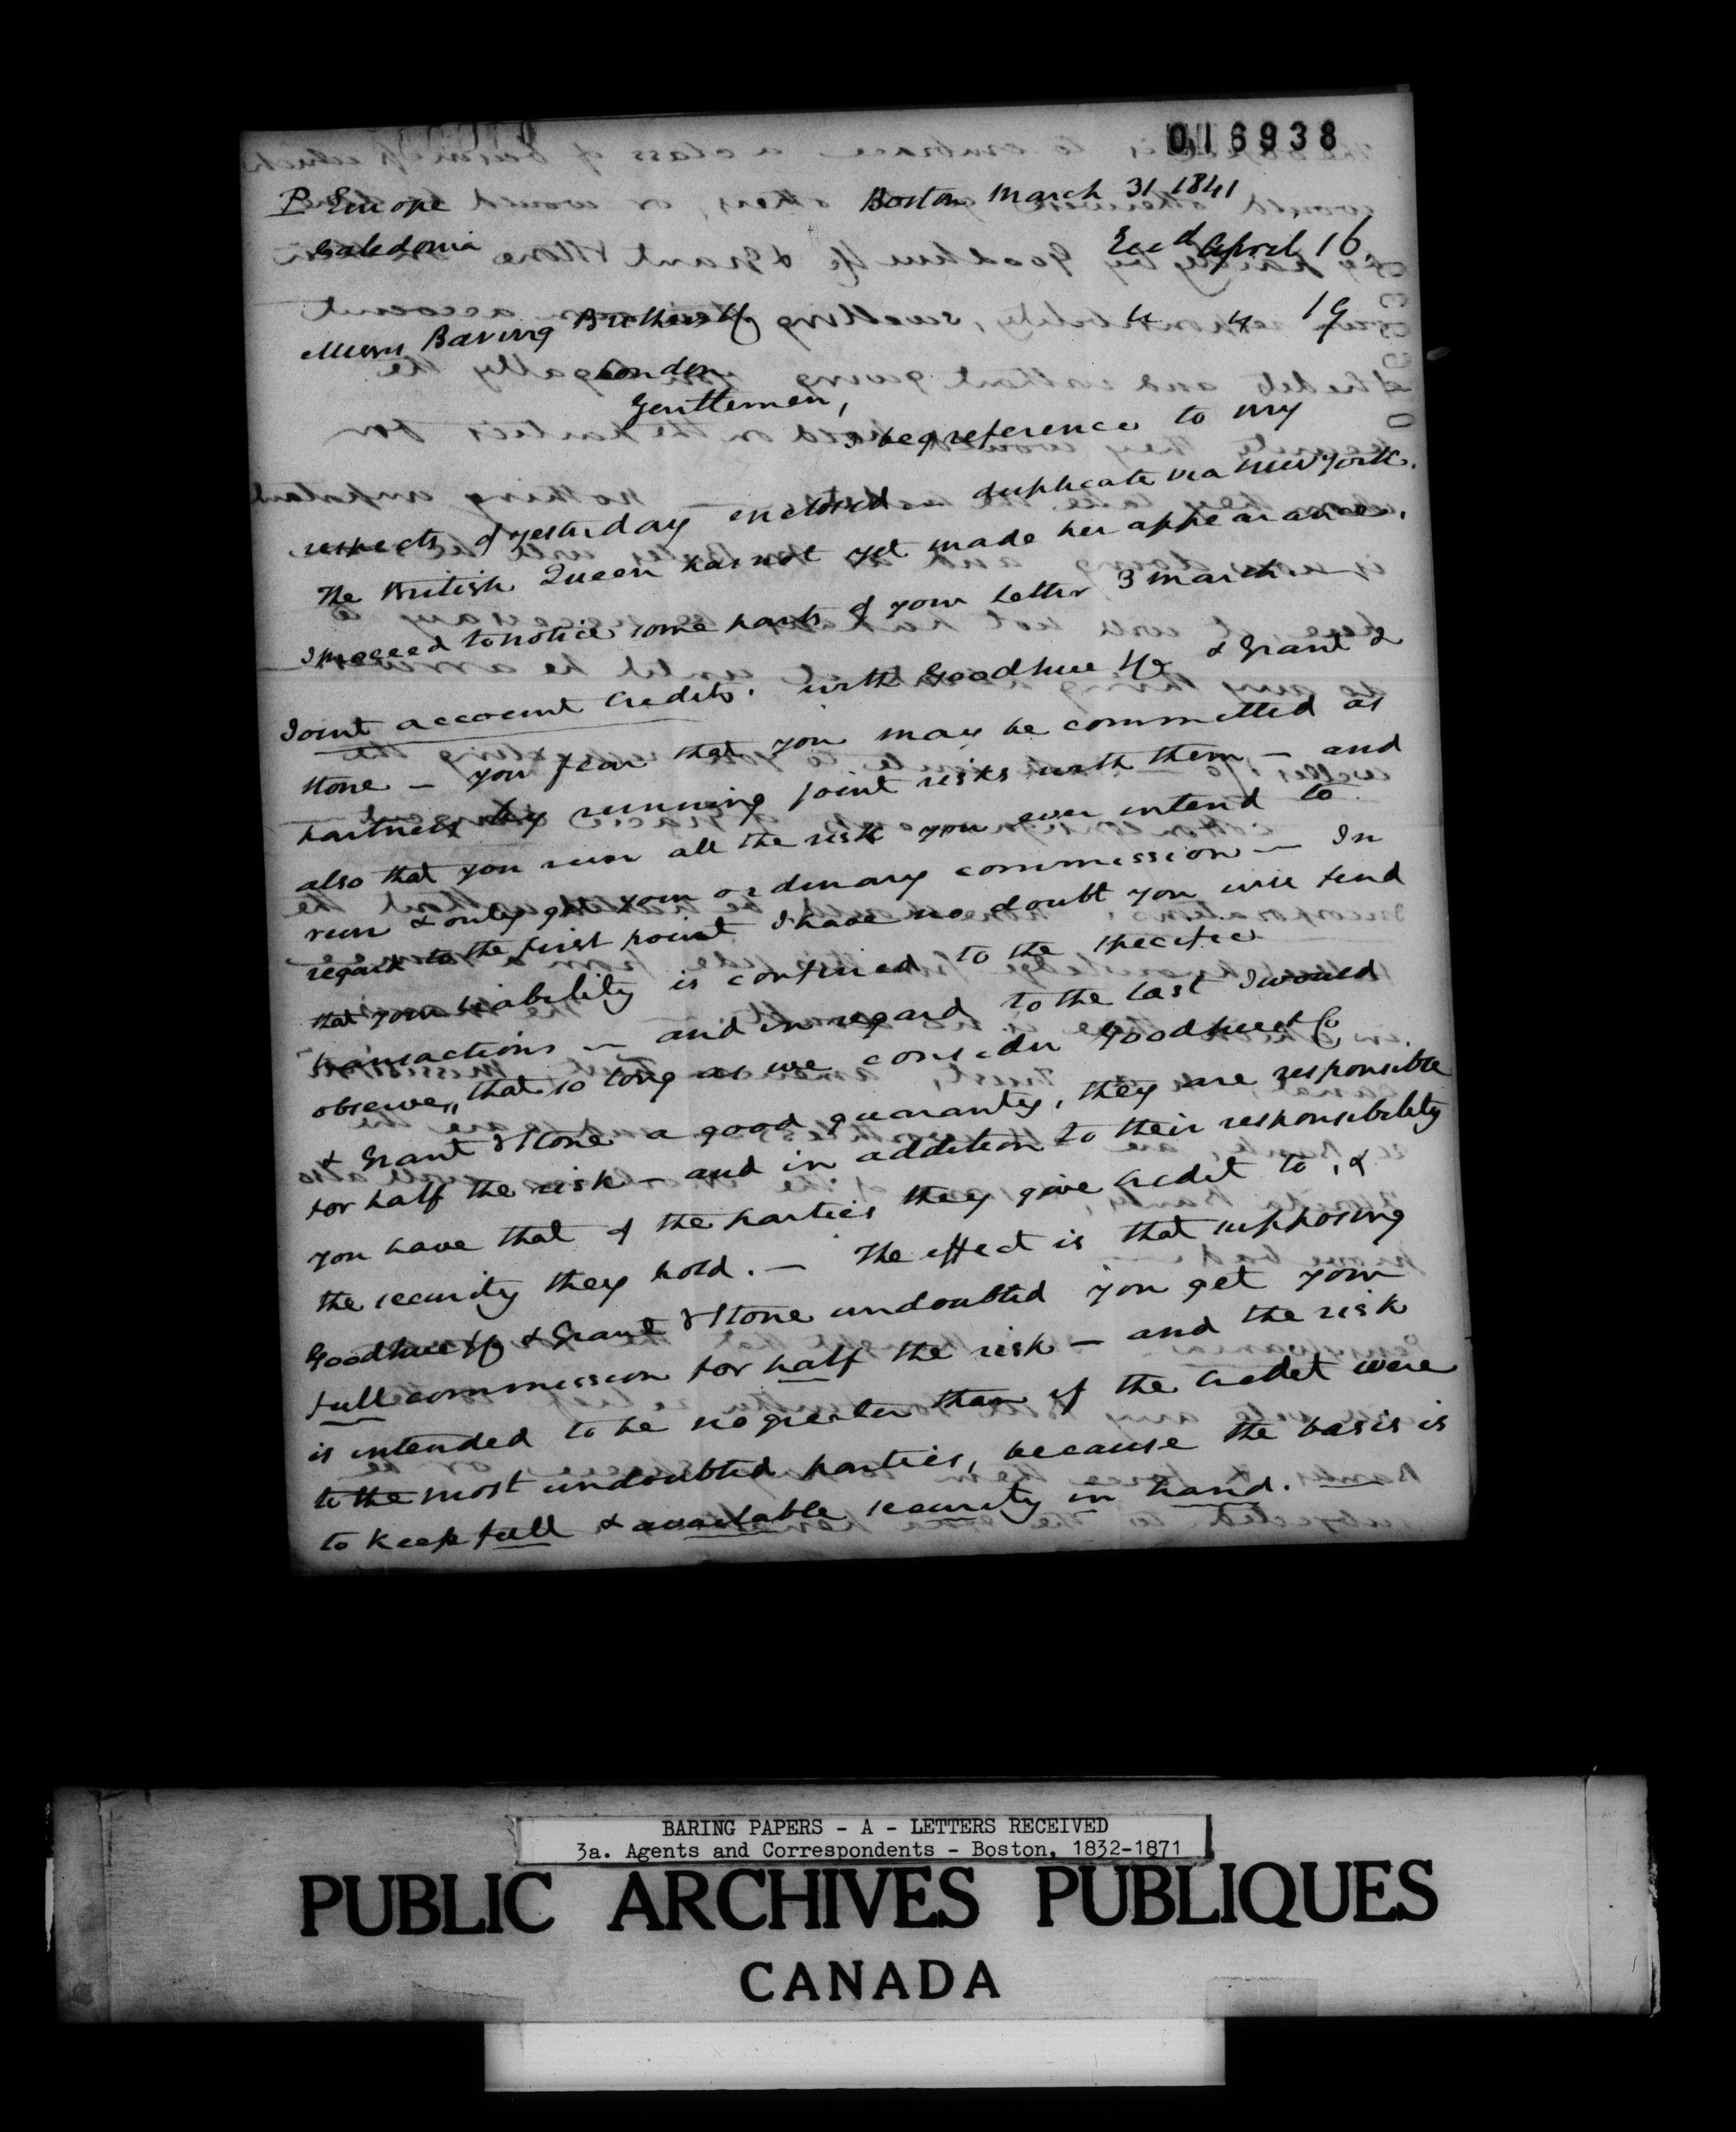 016938
P Europe Boston March 31 1841
Caledonia Recd April 16.
" " 19
Messrs Baring Brothers & Co
London
Gentlemen,
I beg reference to my
respects of yesterday enclosed duplicate via New York.
The British Queen has not yet made her appearance.
I proceed to notice some parts of your letter 3 March —
Joint account Credits. with Goodhue & Co & Grant &
Stone — you fear that you may be committed as
partners by running joint risks with them — and
also that you run all the risk you ever intend to
run & only get your ordinary commission — In
regard to the first point I have no doubt you will find
that your liability is confined to the specific
transactions — and in regard to the last I would
observe, that so long as we consider Goodhue & Co.
& Grant & Stone a good guaranty, they are responsible
for half the risk — and in addition to their responsibility
you have that of the parties they give credit to, &
the security they hold. — The effect is that supposing
Goodhue & Co & Grant & Stone undoubted you get your
full commission for half the risk — and the risk
is intended to be no greater than if the credit were
to the most undoubted parties, because the basis is
to keep full & available security in hand. —
BARING PAPERS - A - LETTERS RECEIVED
3a. Agents and Correspondents - Boston, 1832-1871
PUBLIC ARCHIVES PUBLIQUES
CANADA